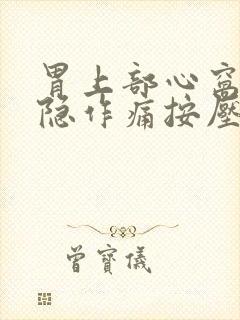 胃上部心窝
隐作痛按壓
曾寳儀